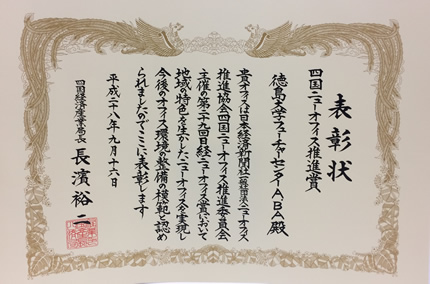 表彰状
四国ニューオフィス推進賞
徳島大学フューチャーセンターA.BA殿
貴オフィスは日本経済新聞社一般社団法人ニューオフィス
推進協会四国ニューオフィス推進委員会
主催の第二十九回日経ニューオフィス賞において
地域の特色を生かしたニューオフィスを実現し
今後のオフィス環境の整備の模範と認め
られましたのでここに表彰します
平成二十八年九月十六日
四国経済産業局長 長濱裕二